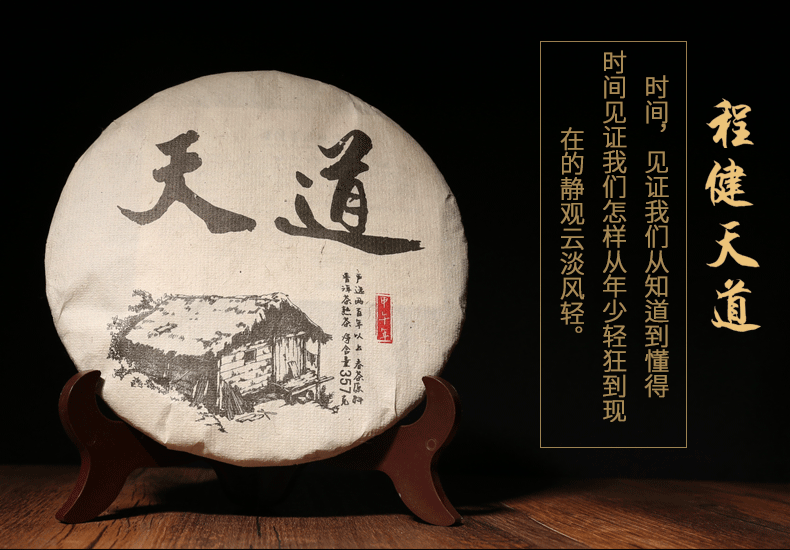 程健天道
时间，见证我们从知道到懂得
时间见证我们怎样从年少轻狂到现
在的静观云淡风轻。
天道
甲午年
普洱茶熟茶 净含量357克